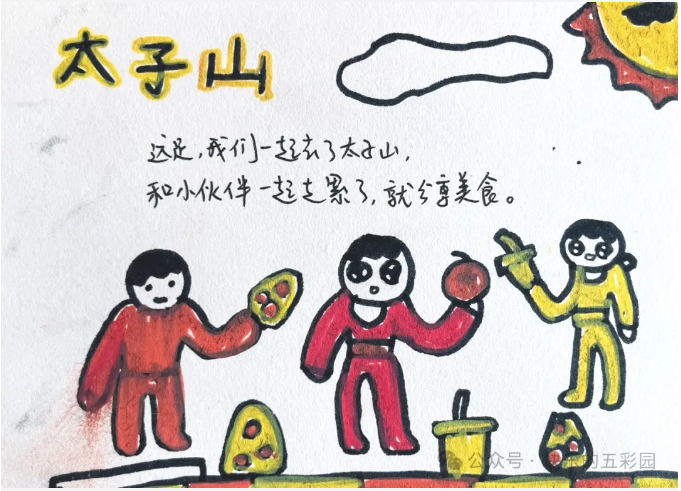 太子山
这足，我们一起去了太子山，
和小伙伴一起走累了，就分享美食。
公众号 · 的五彩园